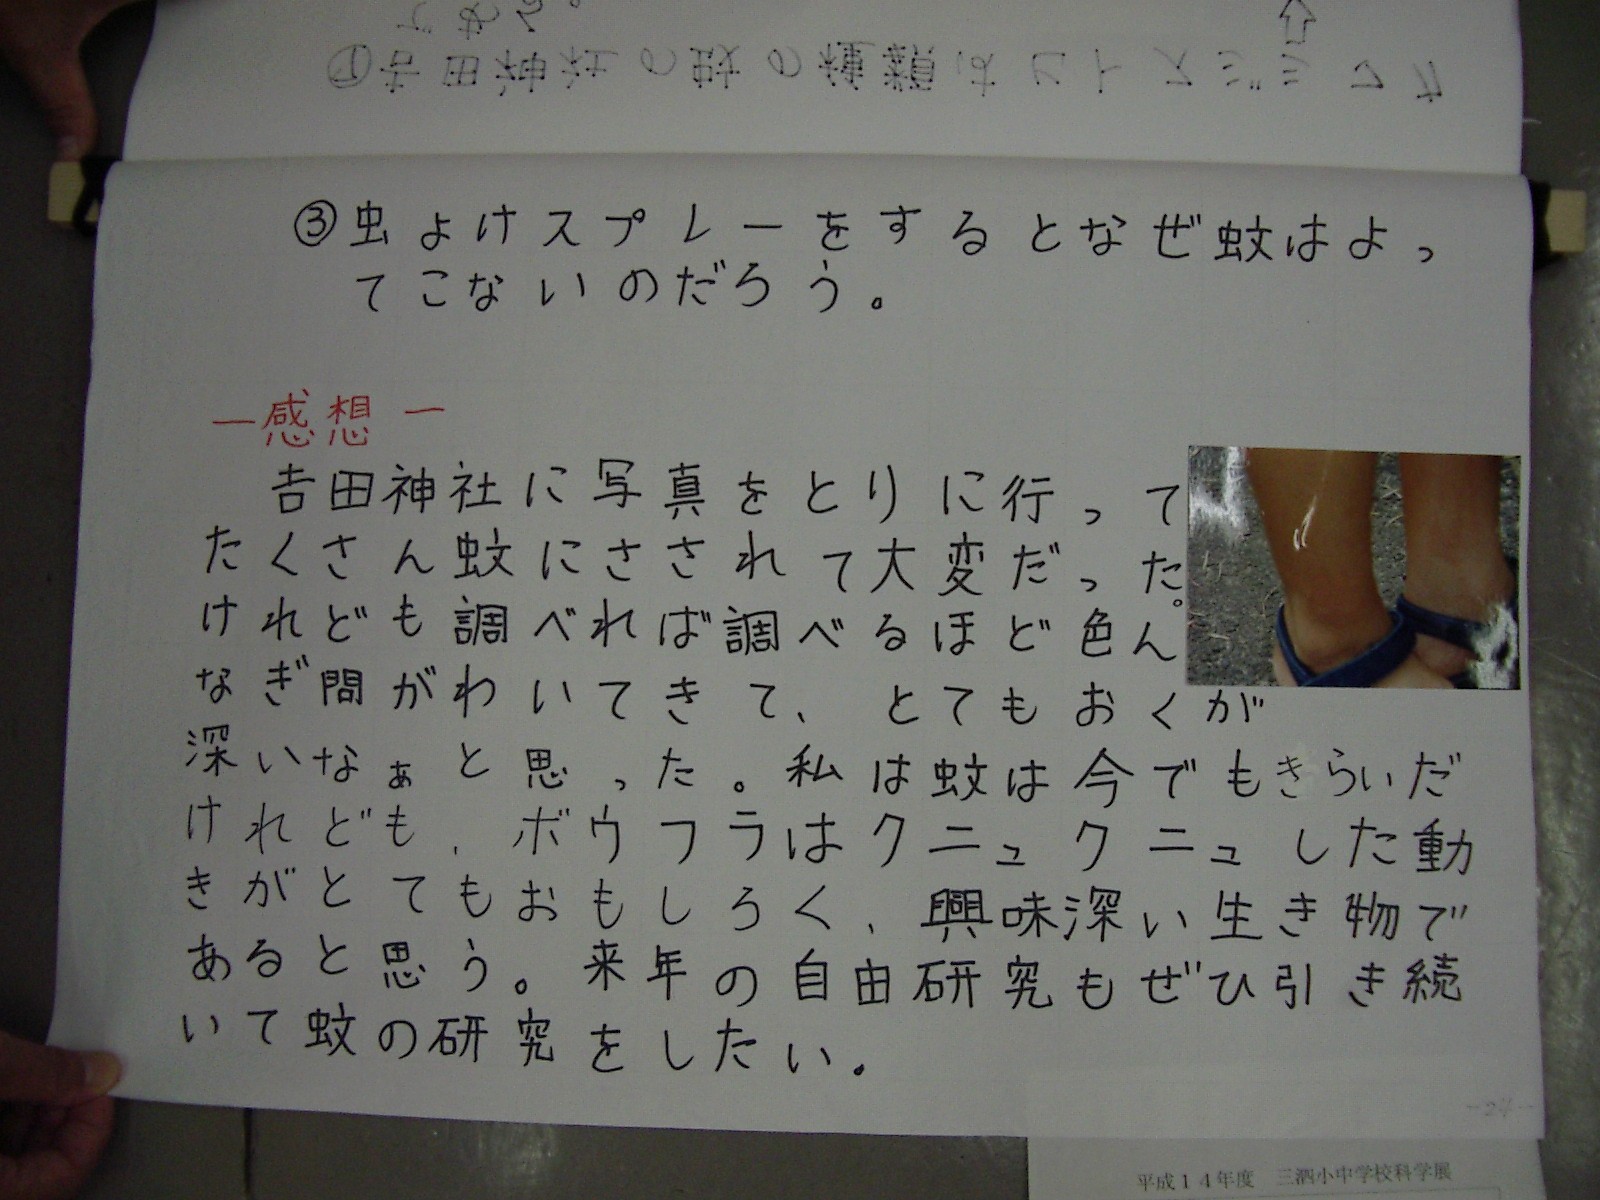 である。
①吉田神社の蚊の種類はヒトスジシマカ
③虫よけスプレーをするとなぜ蚊はよっ
てこないのだろう。
ー感想ー
吉田神社に写真をとりに行って
たくさん蚊にさされて大変だった。
けれども調べれば調べるほど色ん
なぎ問がわいてきて、とてもおくが
深いなぁと思った。私は蚊は今でもきらいだ
けれども、ボウフラはクニュクニュした動
きがとてもおもしろく、興味深い生き物で
あると思う。来年の自由研究もぜひ引き続
いて蚊の研究をしたい。
-24-
平成14年度 三泗小中学校科学展